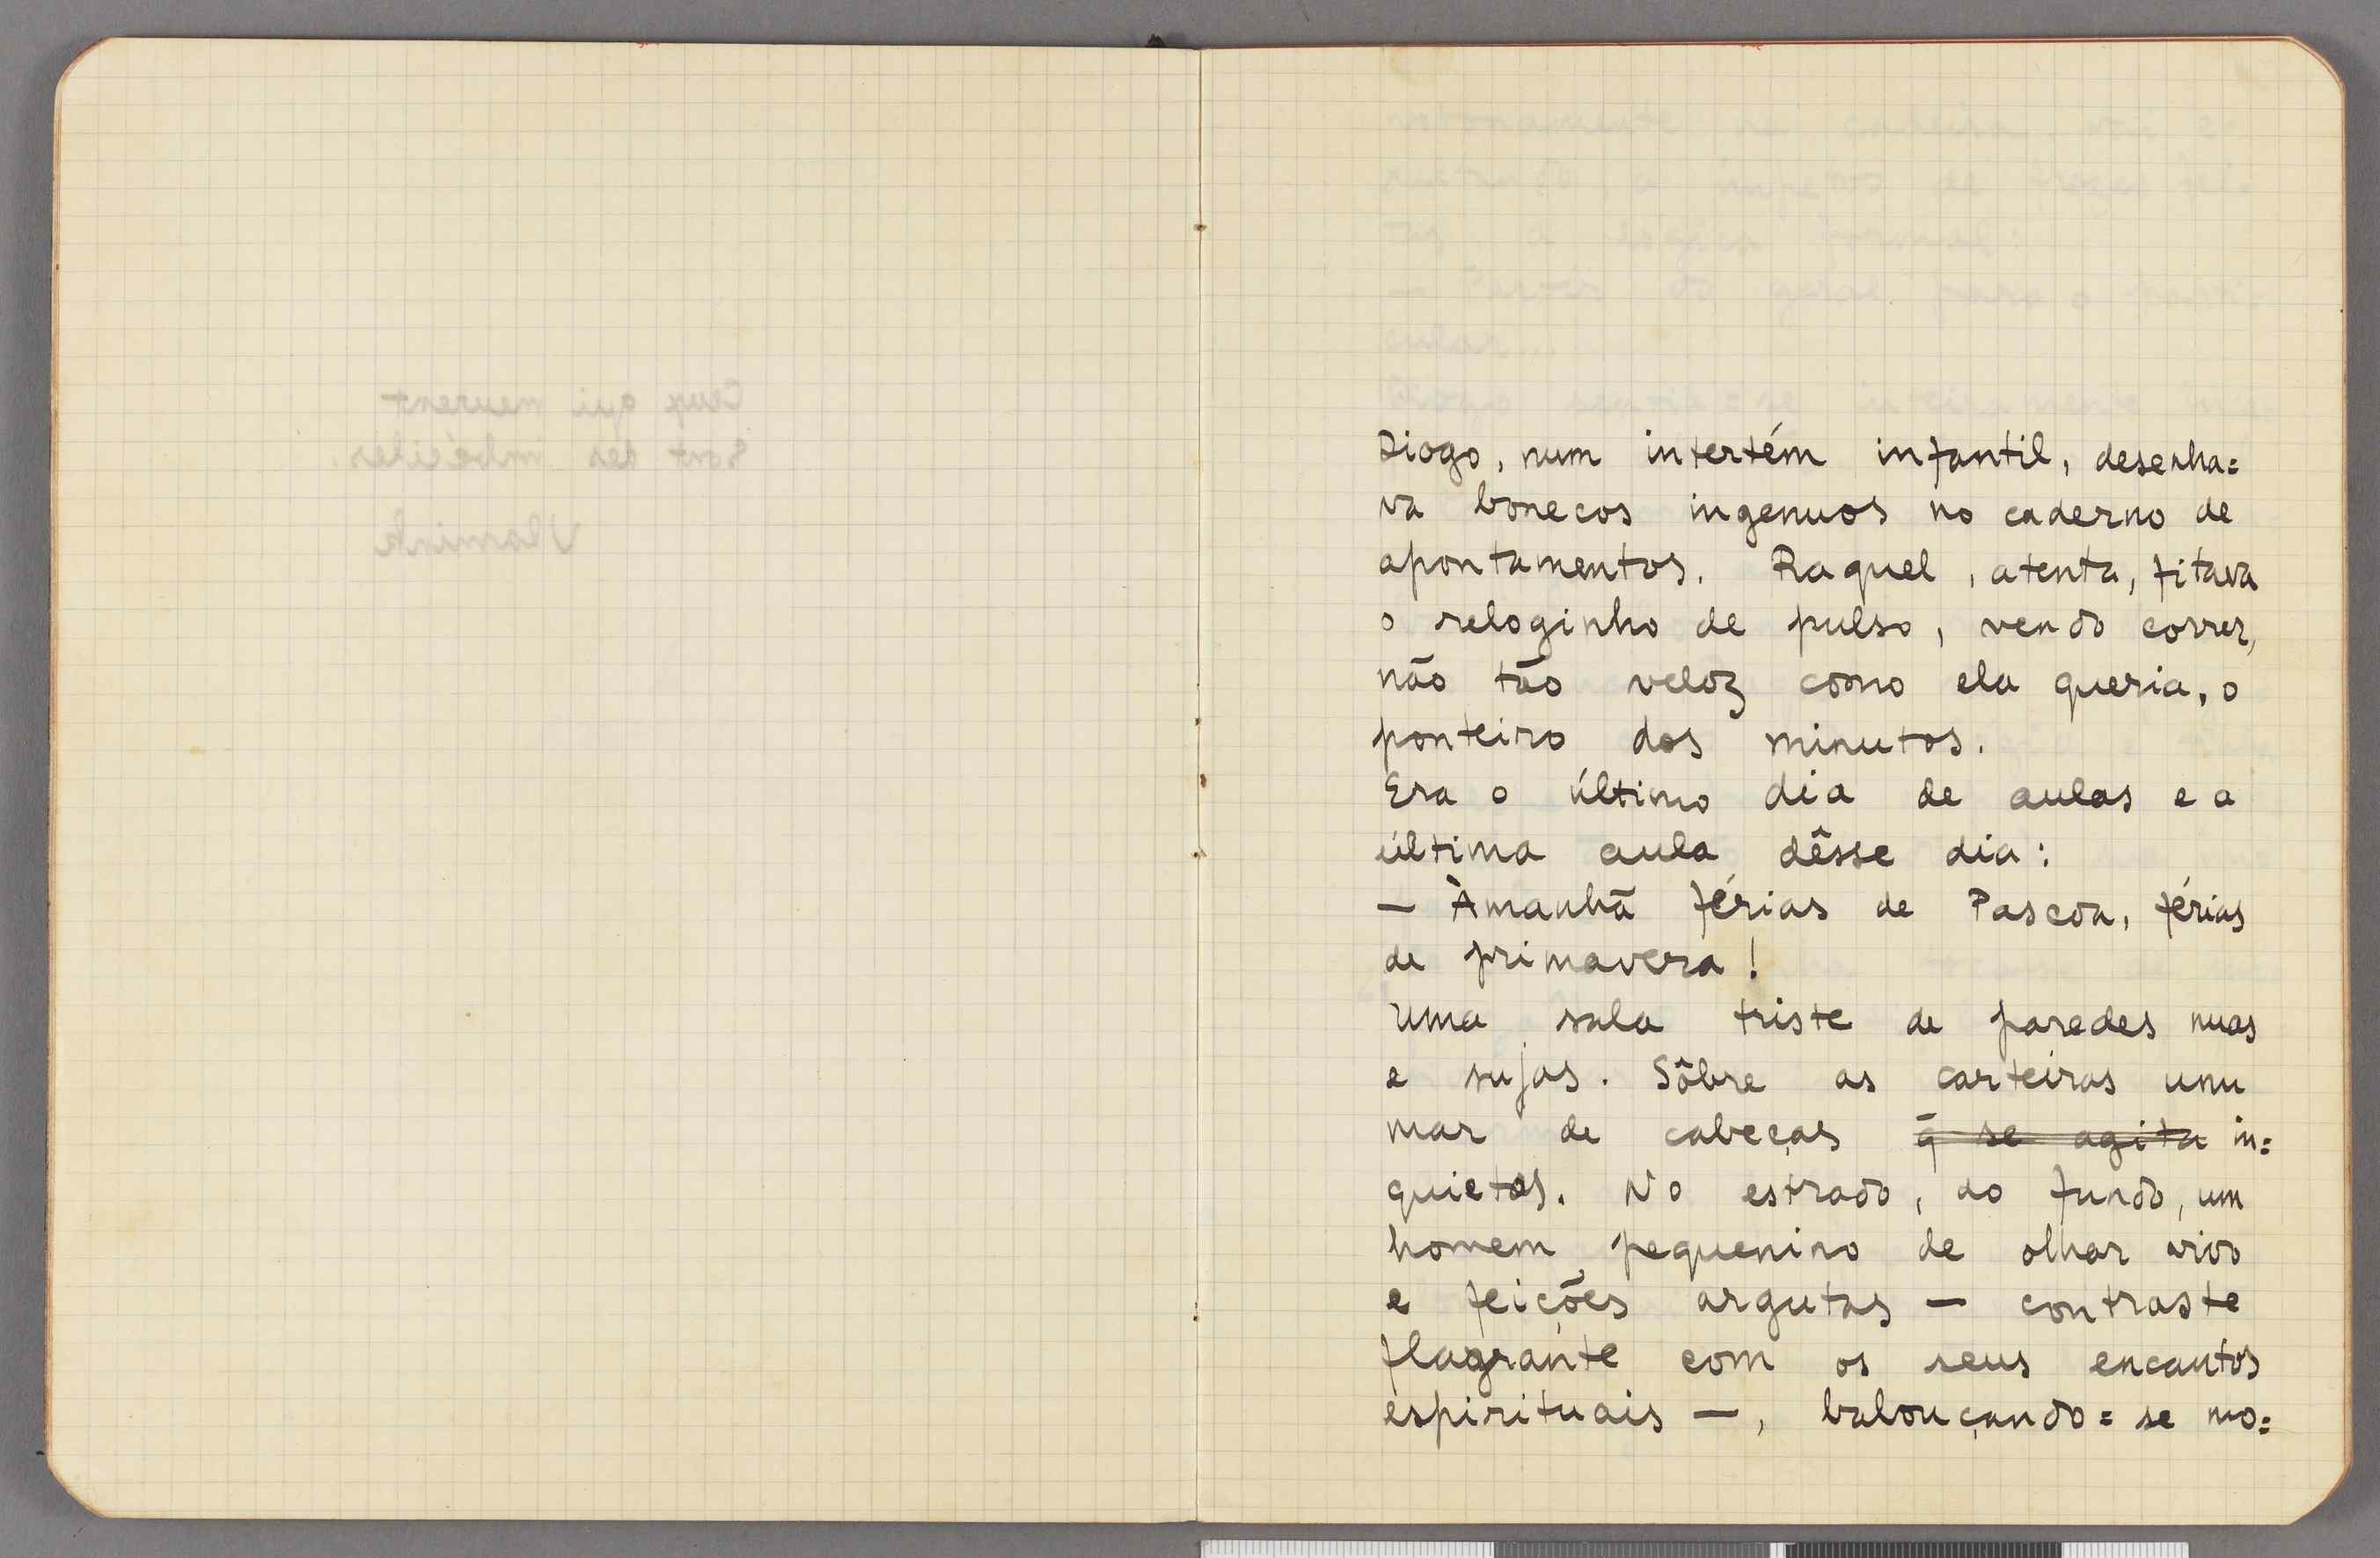 Ceux qui meurent
Sont des imbéciles.
Vlamink
Diogo, num intertém infantil, desenha=
va bonecos ingenuos no caderno de
apontamentos. Raquel, atenta, fitava
o reloginho de pulso, vendo correr,
não tão veloz como ela queria, o
ponteiro dos minutos.
Era o último dia de aulas e a
última aula dêsse dia:
— Àmanhã férias de Pascoa, férias
de primavera!
Uma sala triste de paredes nuas
e sujas. Sôbre as carteiras um
mar de cabeças q̃ se agita in=
quietas. No estrado, ao fundo, um
homem pequenino de olhar vivo
e feições argutas — contraste
flagrante com os seus encantos
espirituais —, balouçando=se mo=